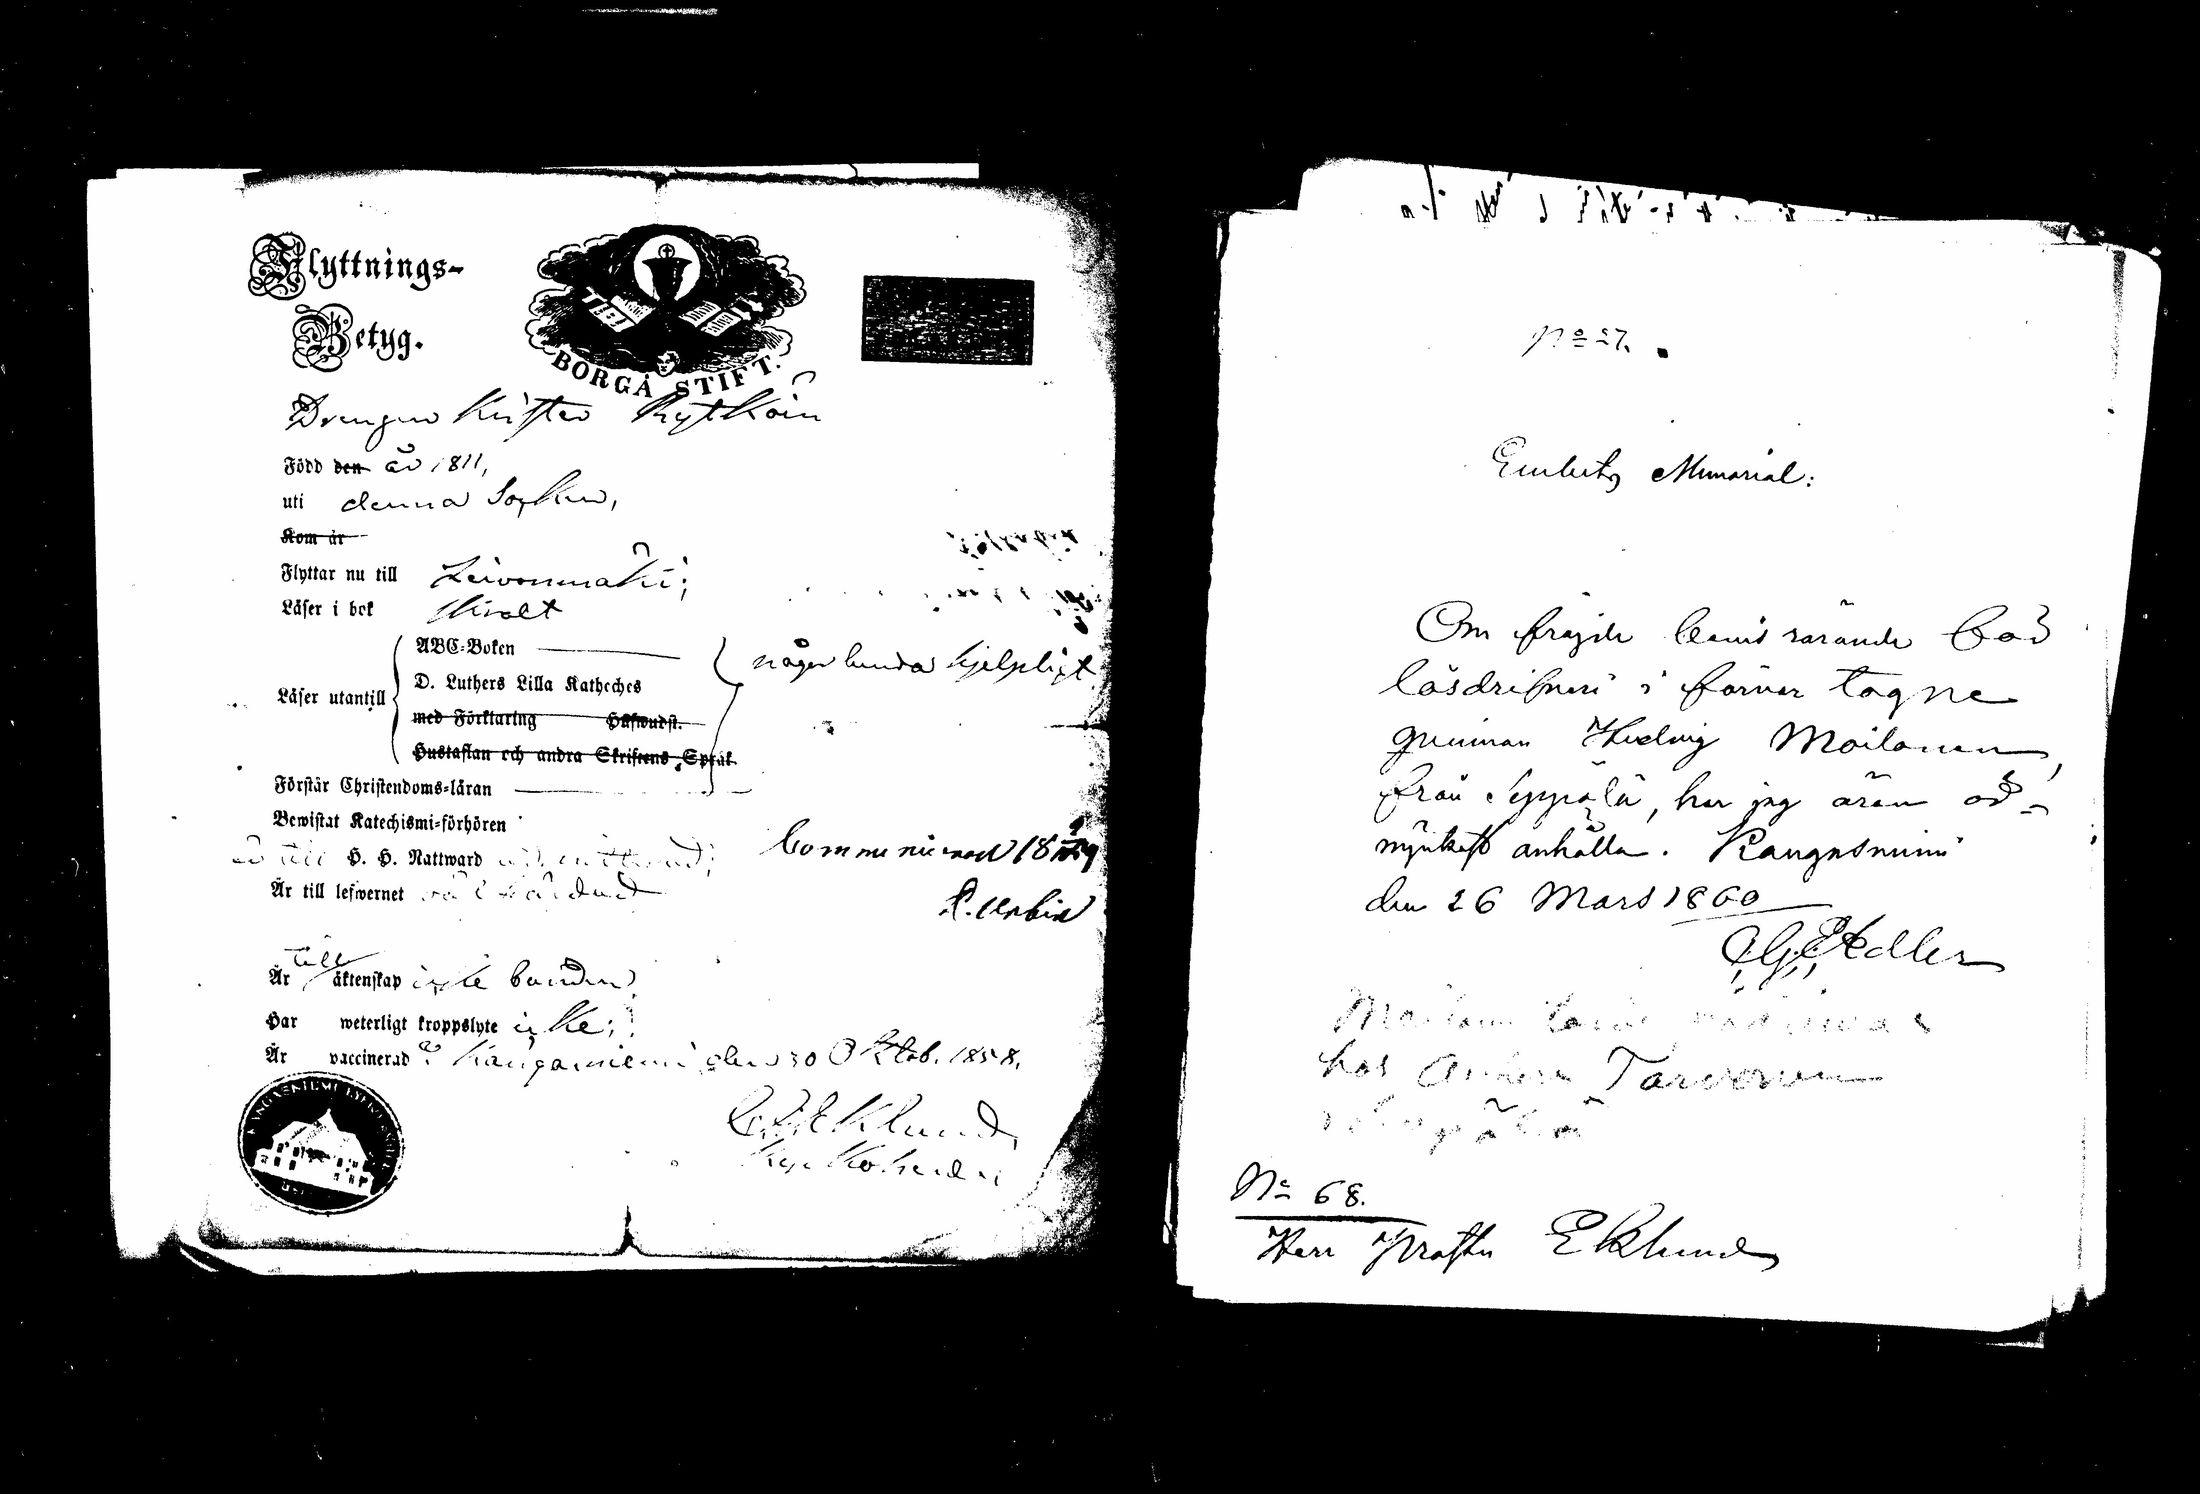 Flyttnings-
Betyg.
BORGÅ STIFT.
Drengen Krister Rytköin
Född den år 1811,
uti denna Socken,
Kom år
Flyttar nu till Leivonmäki;
Läser i bok
ABC-Boken
någorlunda hjelpligt
Läser utantill
D. Luthers Lilla Katheches
med Förklaring Hafwudst.
Hustaflan och andra Skriftens Språk
Förstår Christendoms-läran
Bewistat Katechismi-förhören
H. H. Nattward
Communicerad 18
Är till lefwernet
Är till äktenskap icke bunden
Har weterligt kroppslyte icke;
Är vaccinerad Kangasniemi den 30 Oktob. 1858.
Eklund,
Kyrkoherde
No 27.
Embets Memorial:
Om frejde bevis rörande för
lösdrifveri i förvar tagne
qvinnan Hedvig Moilanen,
från Seppälä, har jag äran öd-
mjukast anhålla. Kangasniemi
den 26 Mars 1860
Adler
hos Anders Tarvonen
No 68.
Herr Prosten Eklund